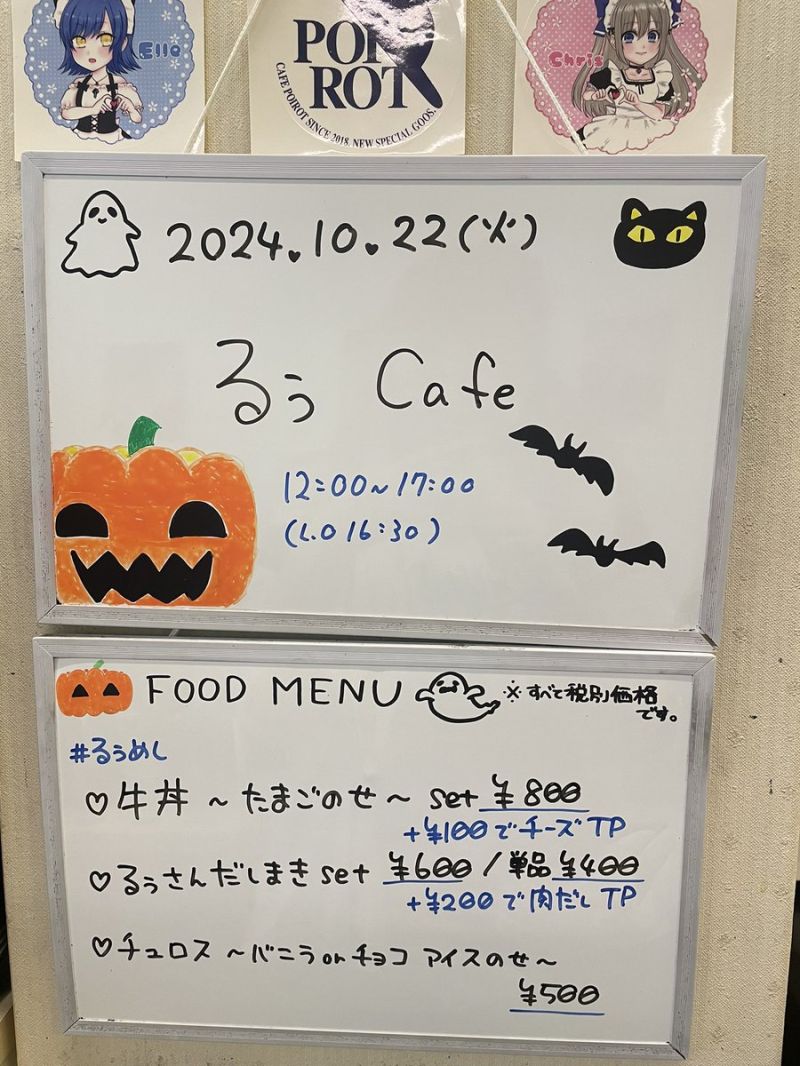 Ello
POIROT
CAFE POIROT SINCE 2018. NEW SPECIAL GOOS.
Chris
2024.10.22(火)
るぅ Cafe
12:00~17:00
(L.O 16:30)
FOOD MENU
※すべて税別価格
です。
#るぅめし
♡牛丼 ~たまごのせ~ set ¥800
+¥100でチーズTP
♡るぅさんだしまき set ¥600 / 単品 ¥400
+¥200で肉だし TP
♡チュロス ~バニラorチョコ アイスのせ~
¥500